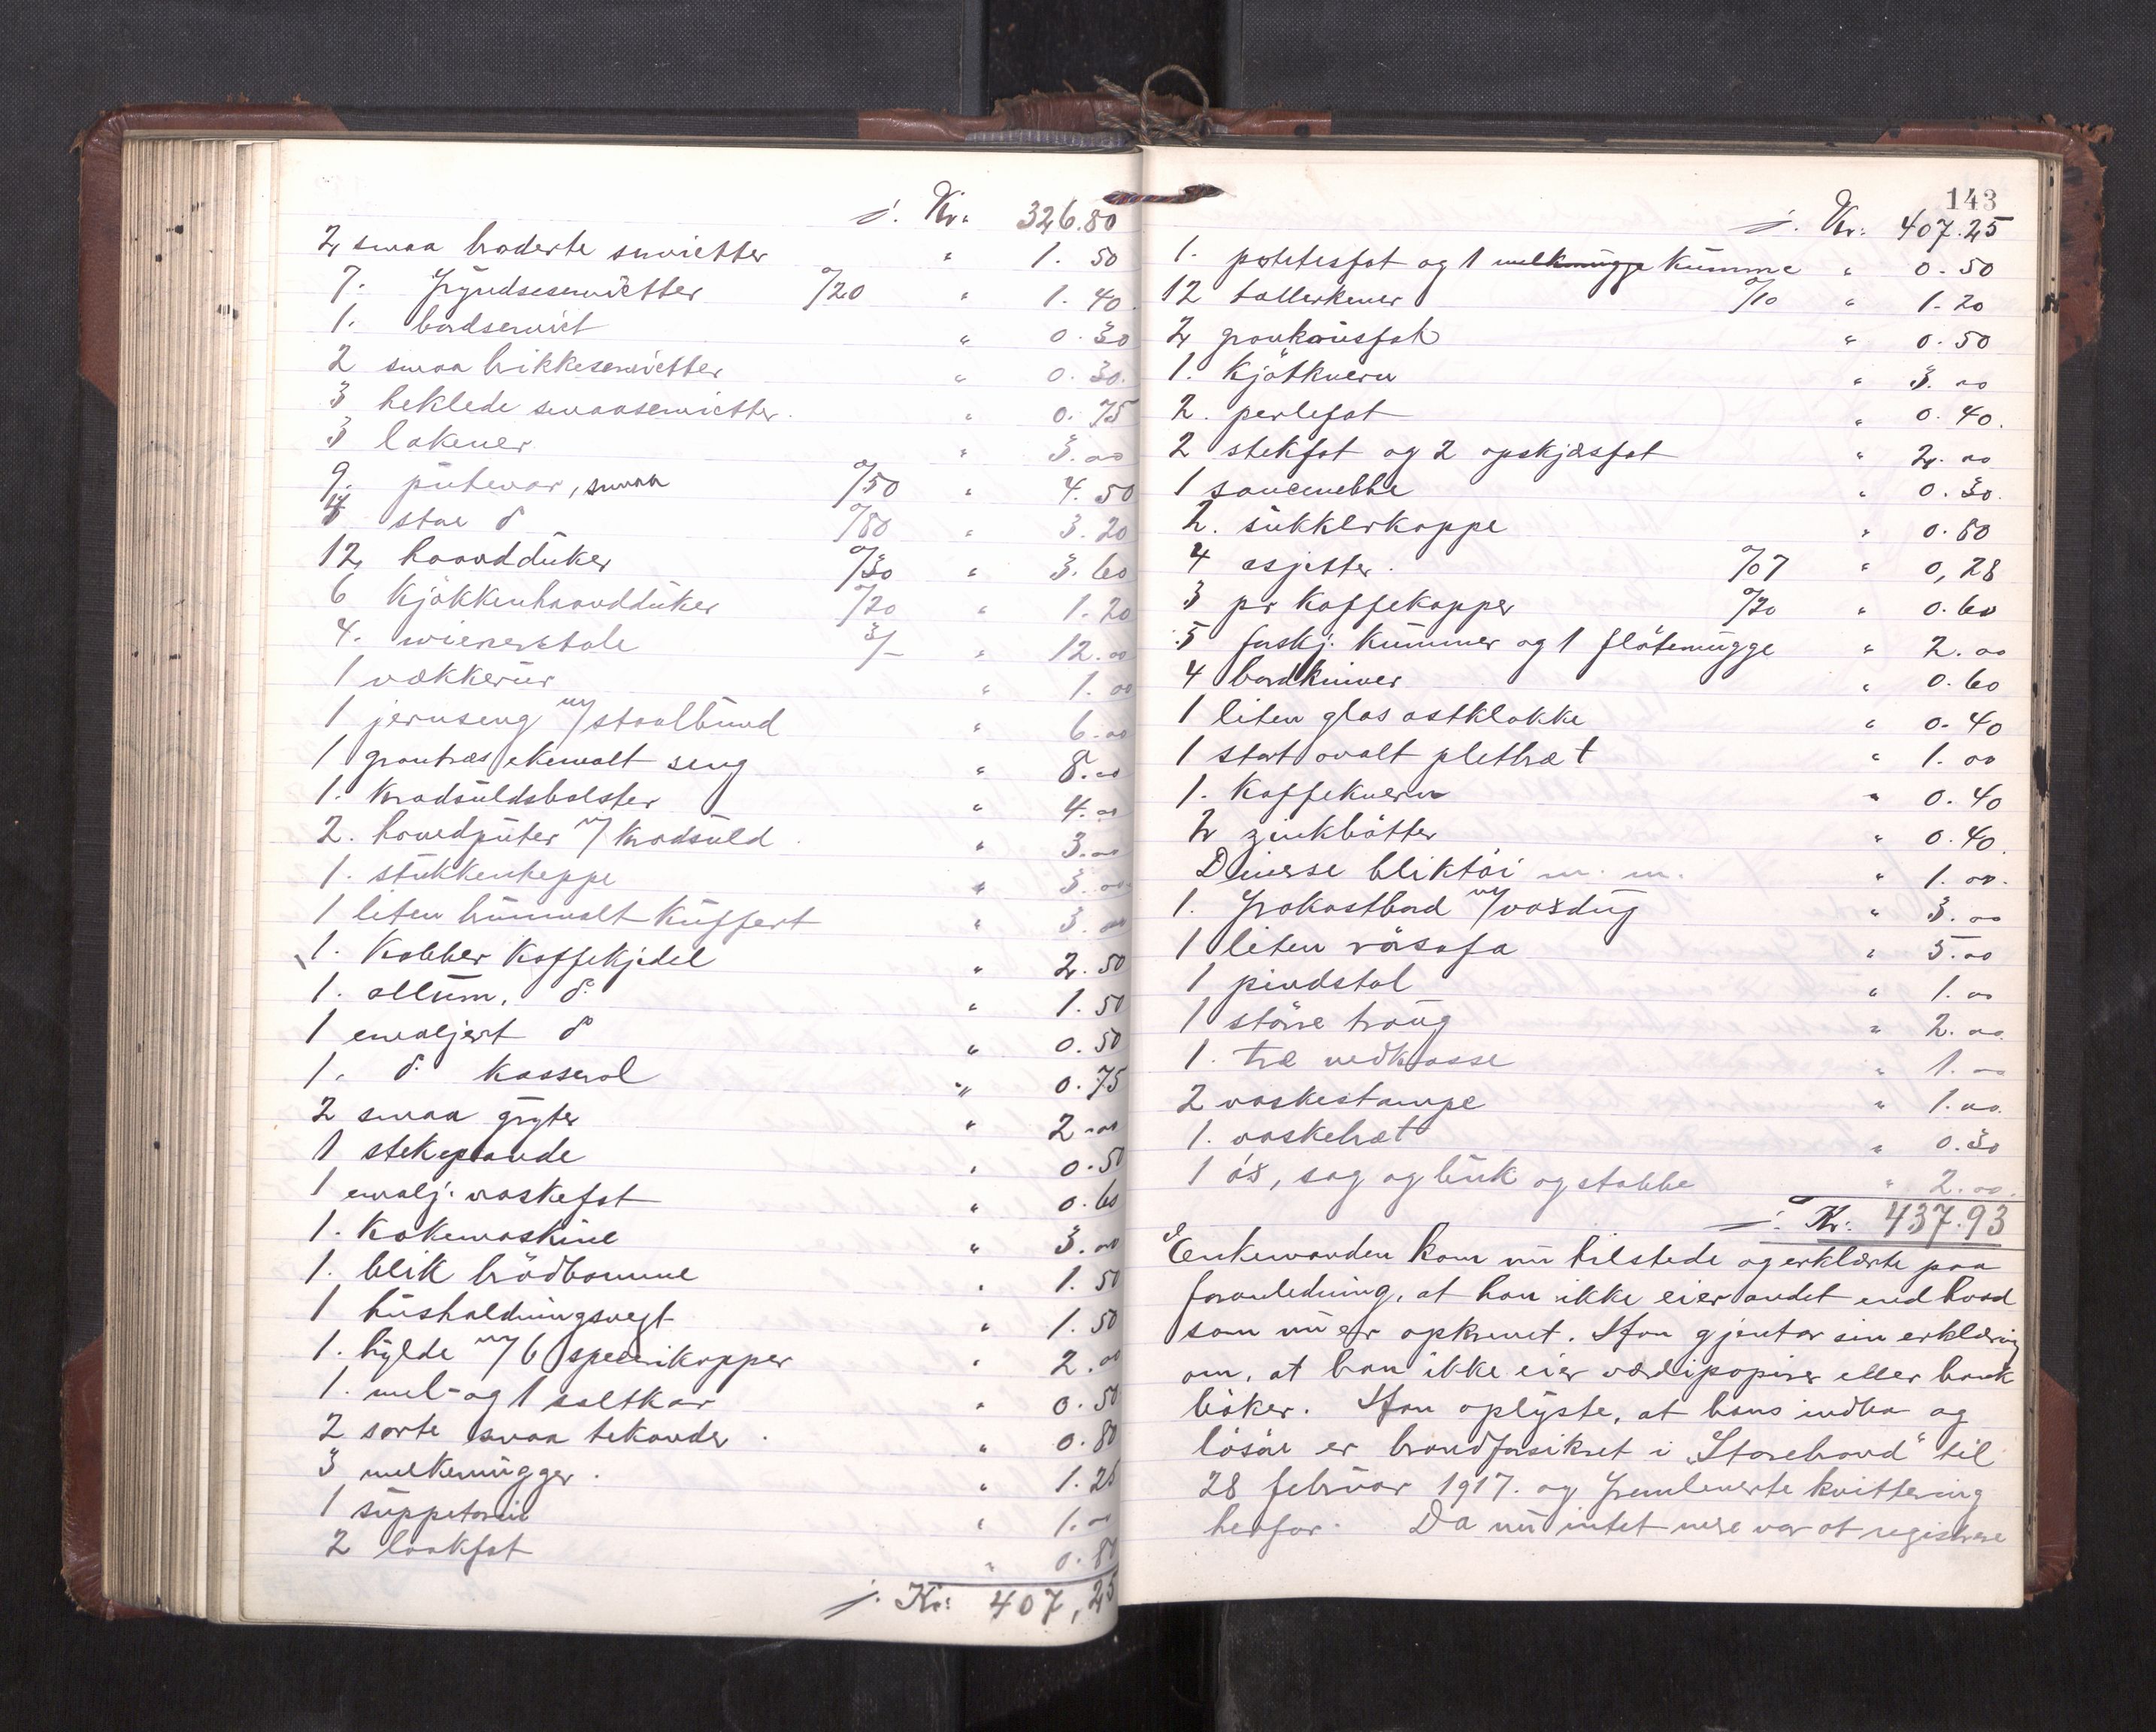 j. Kr. 326.80
2 smaa broderte servietter " 1.50
7. Fryndseservietter o/20 " 1.40
1. bordserviet " 0.30
2 smaa brikkeservietter " 0.30.
3 heklede smaaservietter. " 0.75
3 lakener " 3.00
9. putevar, smaa o/50 " 4.50
4 stoe do o/80 " 3.20
12 haandduker o/30 " 3.60
6 Kjøkkenhaandduker o/20 " 1.20
4. wienerstole 3/- " 12.00
1 vækkerur " 1.00
1 jernseng m/staalbund " 6.00
1 grantræs ekemalt seng " 8.00
1. Kradsuldsbolster " 4.00
2. hovedputer m/ Kradsuld. " 3.00
1. stukkenteppe " 3.00
1 liten brunmalt Kuffert " 3.00
1. Kobber Kaffekjedel " 2.50
1. allum. do " 1.50
1 emaljert do " 0.50
1. do Kasserol " 0.75
2 smaa gryter " 2.00
1 stekepande " 0.50
1 emalj. vaskefat " 0.60
1. Kokemaskine " 3.00
1. blik brødbomme " 1.50
1 husholdningsvegt " 1.50
1. hylde m/6 specerikopper " 2.00
1. mel- og 1 saltkar " 0.50
2 sorte smaa tekander. " 0.80
3 melkemugger. " 1.25
1 suppeterin " 1.00
2 laakfat " 0.80
j. Kr: 407,25
143
j. Kr: 407.25
1. potetesfat og 1 melkmugge Kumme " 0.50
12 tallerkener o/10 " 1.20
2 graukausfat " 0.50
1. Kjøtkvern " 3.00
2. perlefat " 0.40.
2 stekfat og 2 opskjæsfat " 2.00
1 saucenebbe " 0.30.
2. sukkerkoppe " 0.80
4 asjetter. o/07 " 0,28
3 pr Kaffekopper o/20 " 0.60
5 forskj. Kummer og 1 fløtemugge " 2.00
4 bordkniver " 0.60
1 liten glas ostklokke " 0.40
1 stort ovalt pletbræt " 1.00
1. Kaffekvern " 0.40
2 zinkbøtter " 0.40.
Diverse bliktøi m. m. " 1.00.
1. Frokostbord m/voxdug " 3.00
1 liten rørsofa " 5.00
1 pindstol " 1.00
1 større traug " 2.00.
1. træ vedkasse " 1.00
2 vaskestampe " 1.00.
1. vaskebræt " 0.30
1 øx, sag og buk og stabbe " 2.00.
j. Kr: 437.93
Enkemanden kom nu tilstede og erklærte paa
foranledning, at han ikke eier andet end hvad
som nu er opkrevet. Han gjentar sin erklæring
om, at han ikke eier værdipapirer eller bank
bøker. Han oplyste, at hans indbo og
løsøre er brandforsikret i "Storebrand" til
28 februar 1917. og fremleverte kvittering
herfor. Da nu intet mere var at registrere